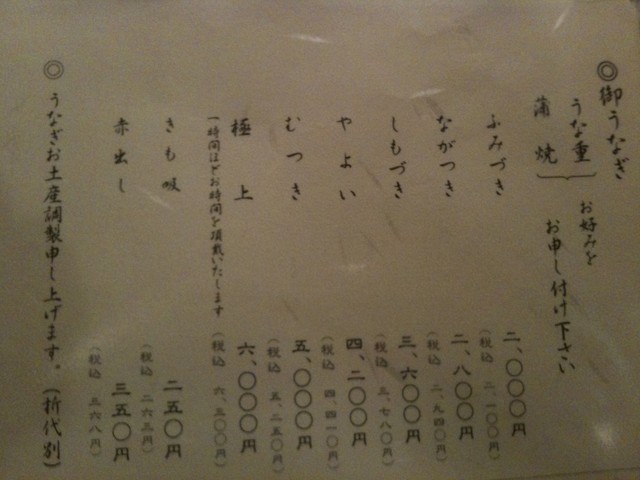 ◎御うなぎ
うな重
蒲焼
お好みを
お申し付け下さい
ふみづき 二、〇〇〇円
(税込 二、一〇〇円)
ながつき 二、八〇〇円
(税込 二、九四〇円)
しもづき 三、六〇〇円
(税込 三、七八〇円)
やよい 四、二〇〇円
(税込 四、四一〇円)
むつき 五、〇〇〇円
(税込 五、二五〇円)
極上 六、〇〇〇円
一時間ほどお時間を頂戴いたします (税込 六、三〇〇円)
きも吸 二五〇円
(税込 二六三円)
赤出し 三五〇円
(税込 三六八円)
◎うなぎお土産調製申し上げます。(折代別)